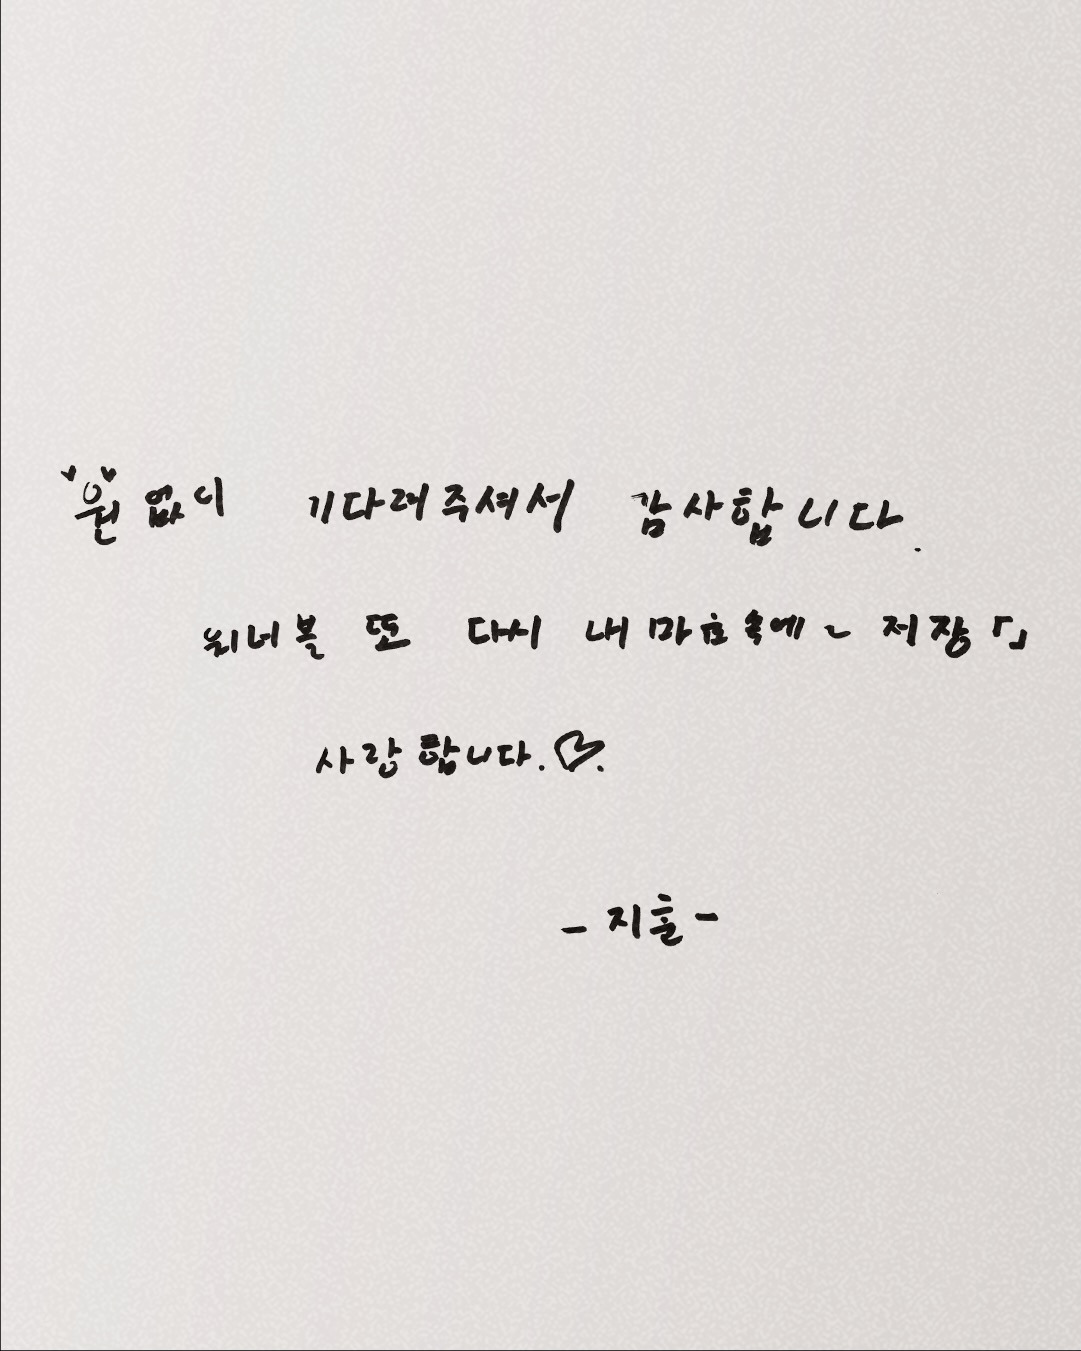 "원"없이 기다려주셔서 감사합니다.
워너블 또 다시 내 마음 속에~ 저장「」
사랑합니다.♡.
- 지훈 -